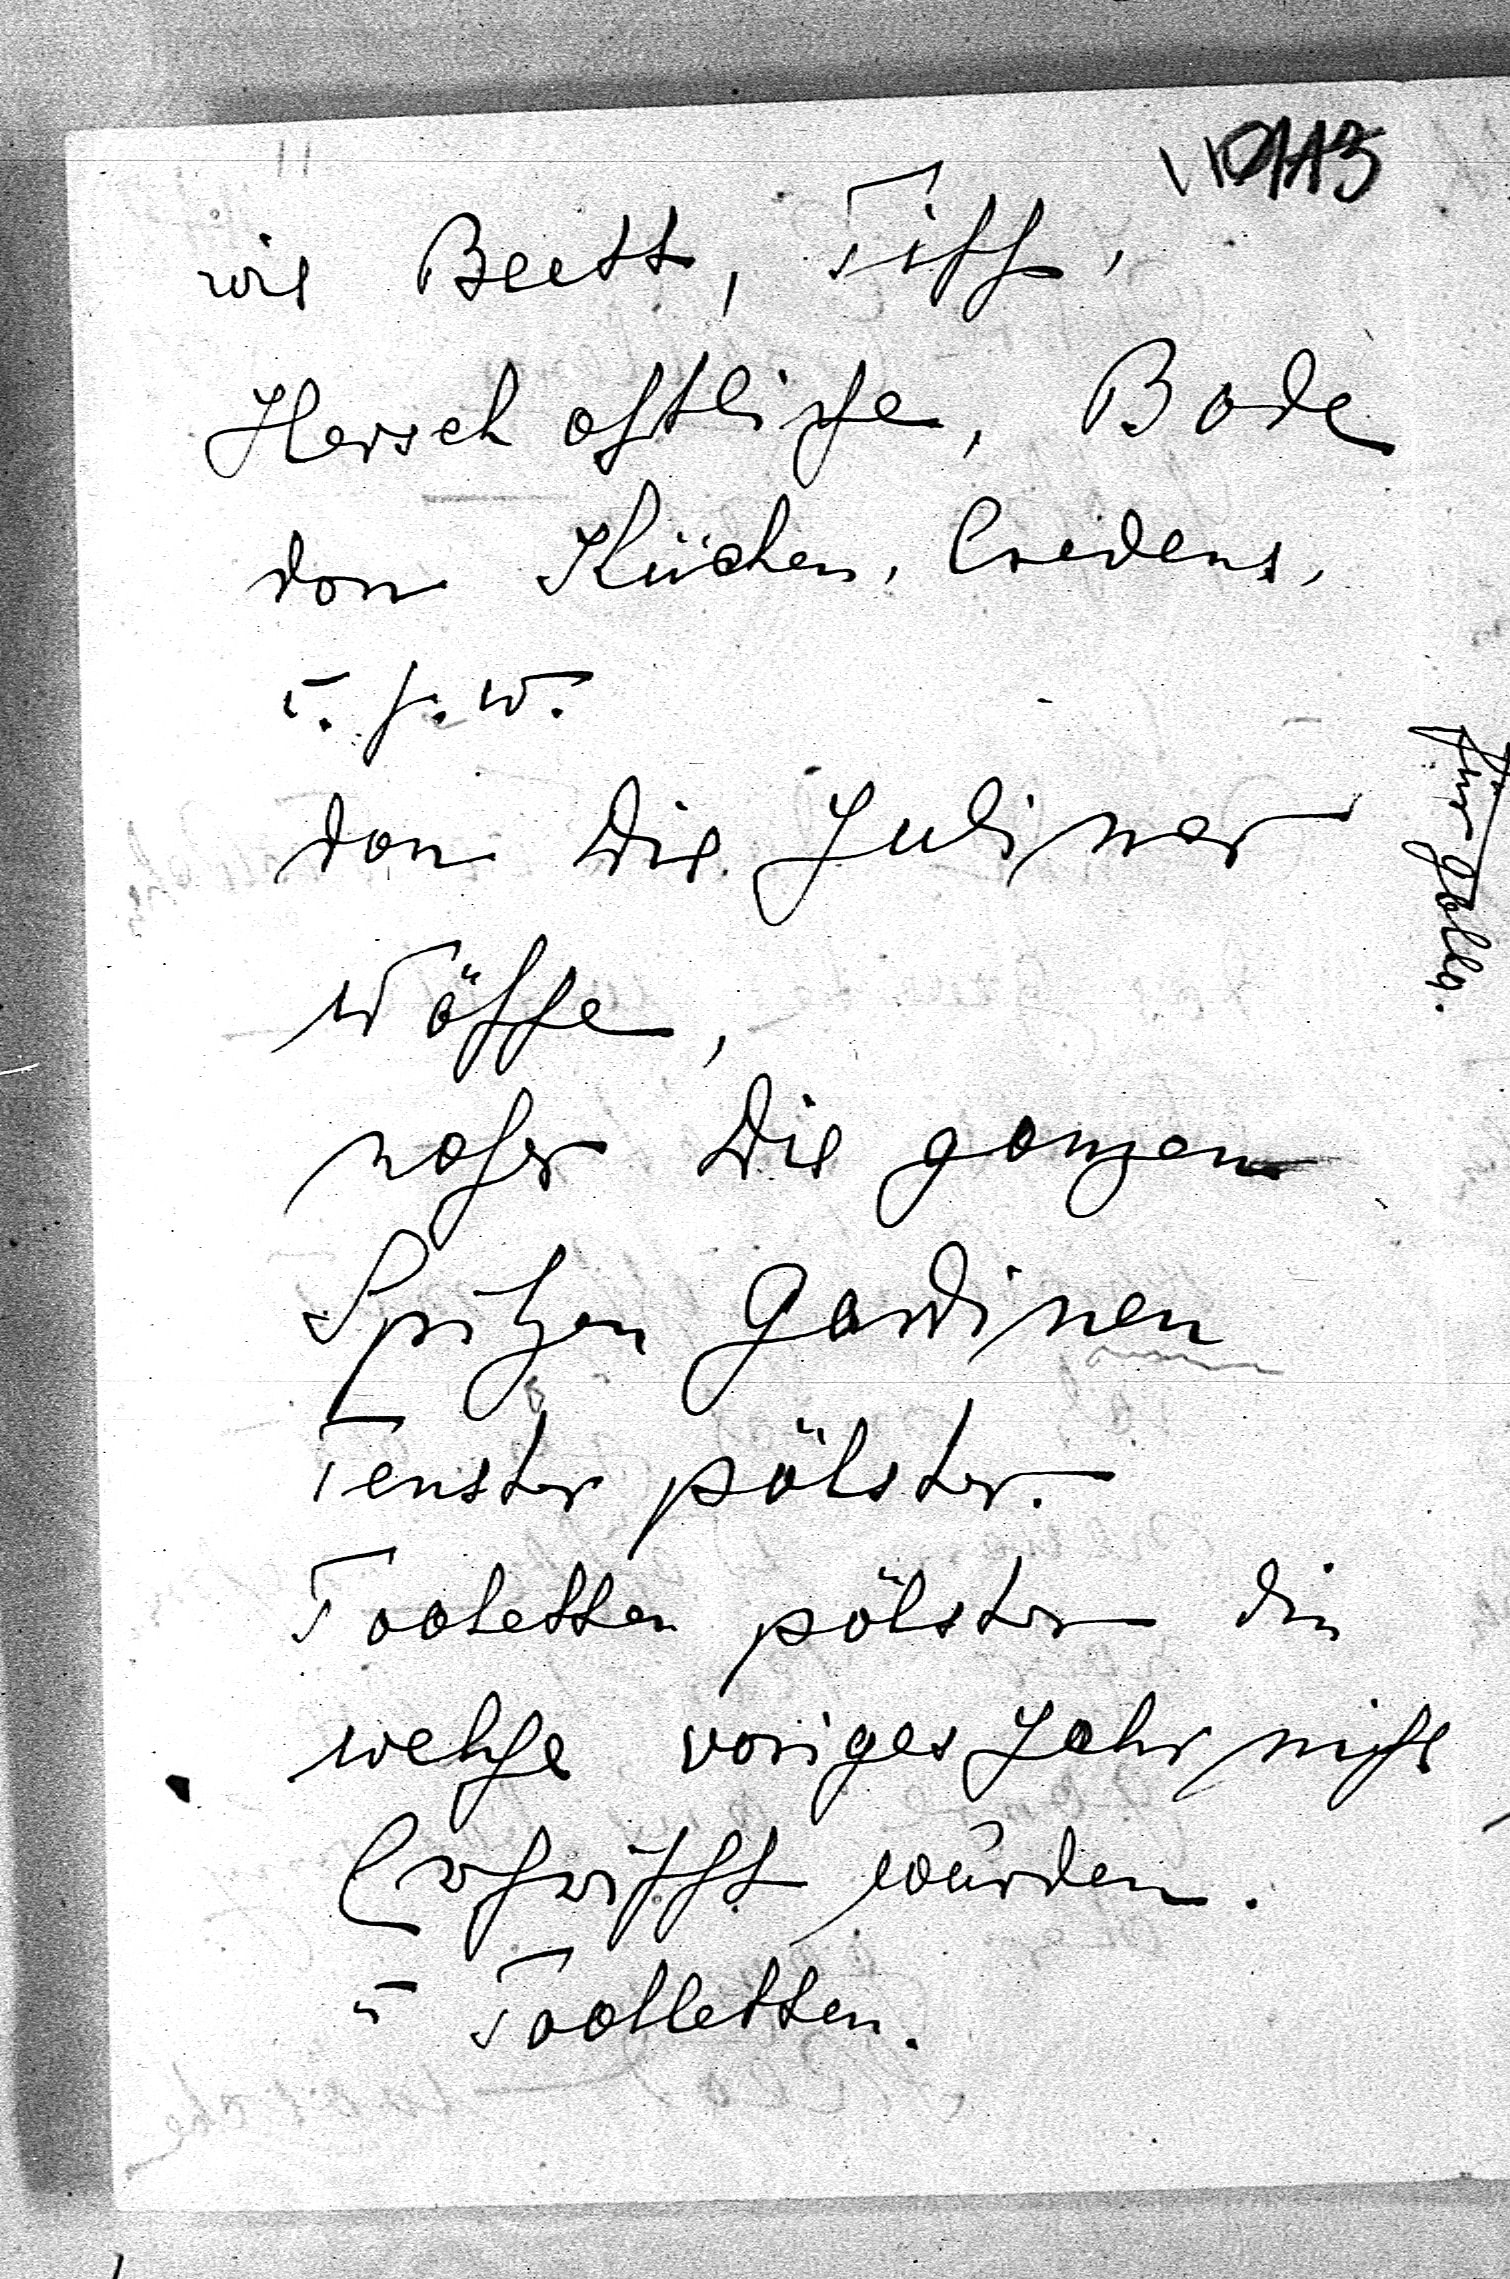 113
wie Bett, Tisch,
Herschaftliche, Bade
dan Küchen, Credens,
u. s. w.
dan die Juliner
Wäsche,
naher die ganzen
Spitzen Gardinen
Fenster pölster.
Tooletten pölster die
welche voriges Jahr nicht
Erfrischt würden.
u Toolletten.
für